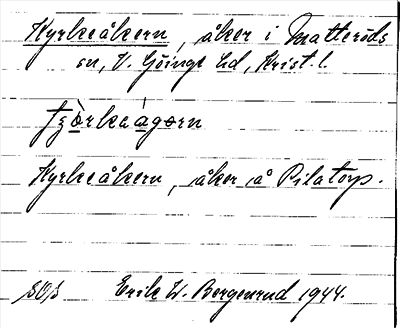 Kyrkeåkern, åker i Matteröds
sn, V. Göinge hd, Krist. l.
tzò̱rkeá̱gørn
Kyrkeåkern, åker å Pilatorp.
SOs Erik W. Bergenrud 1944.